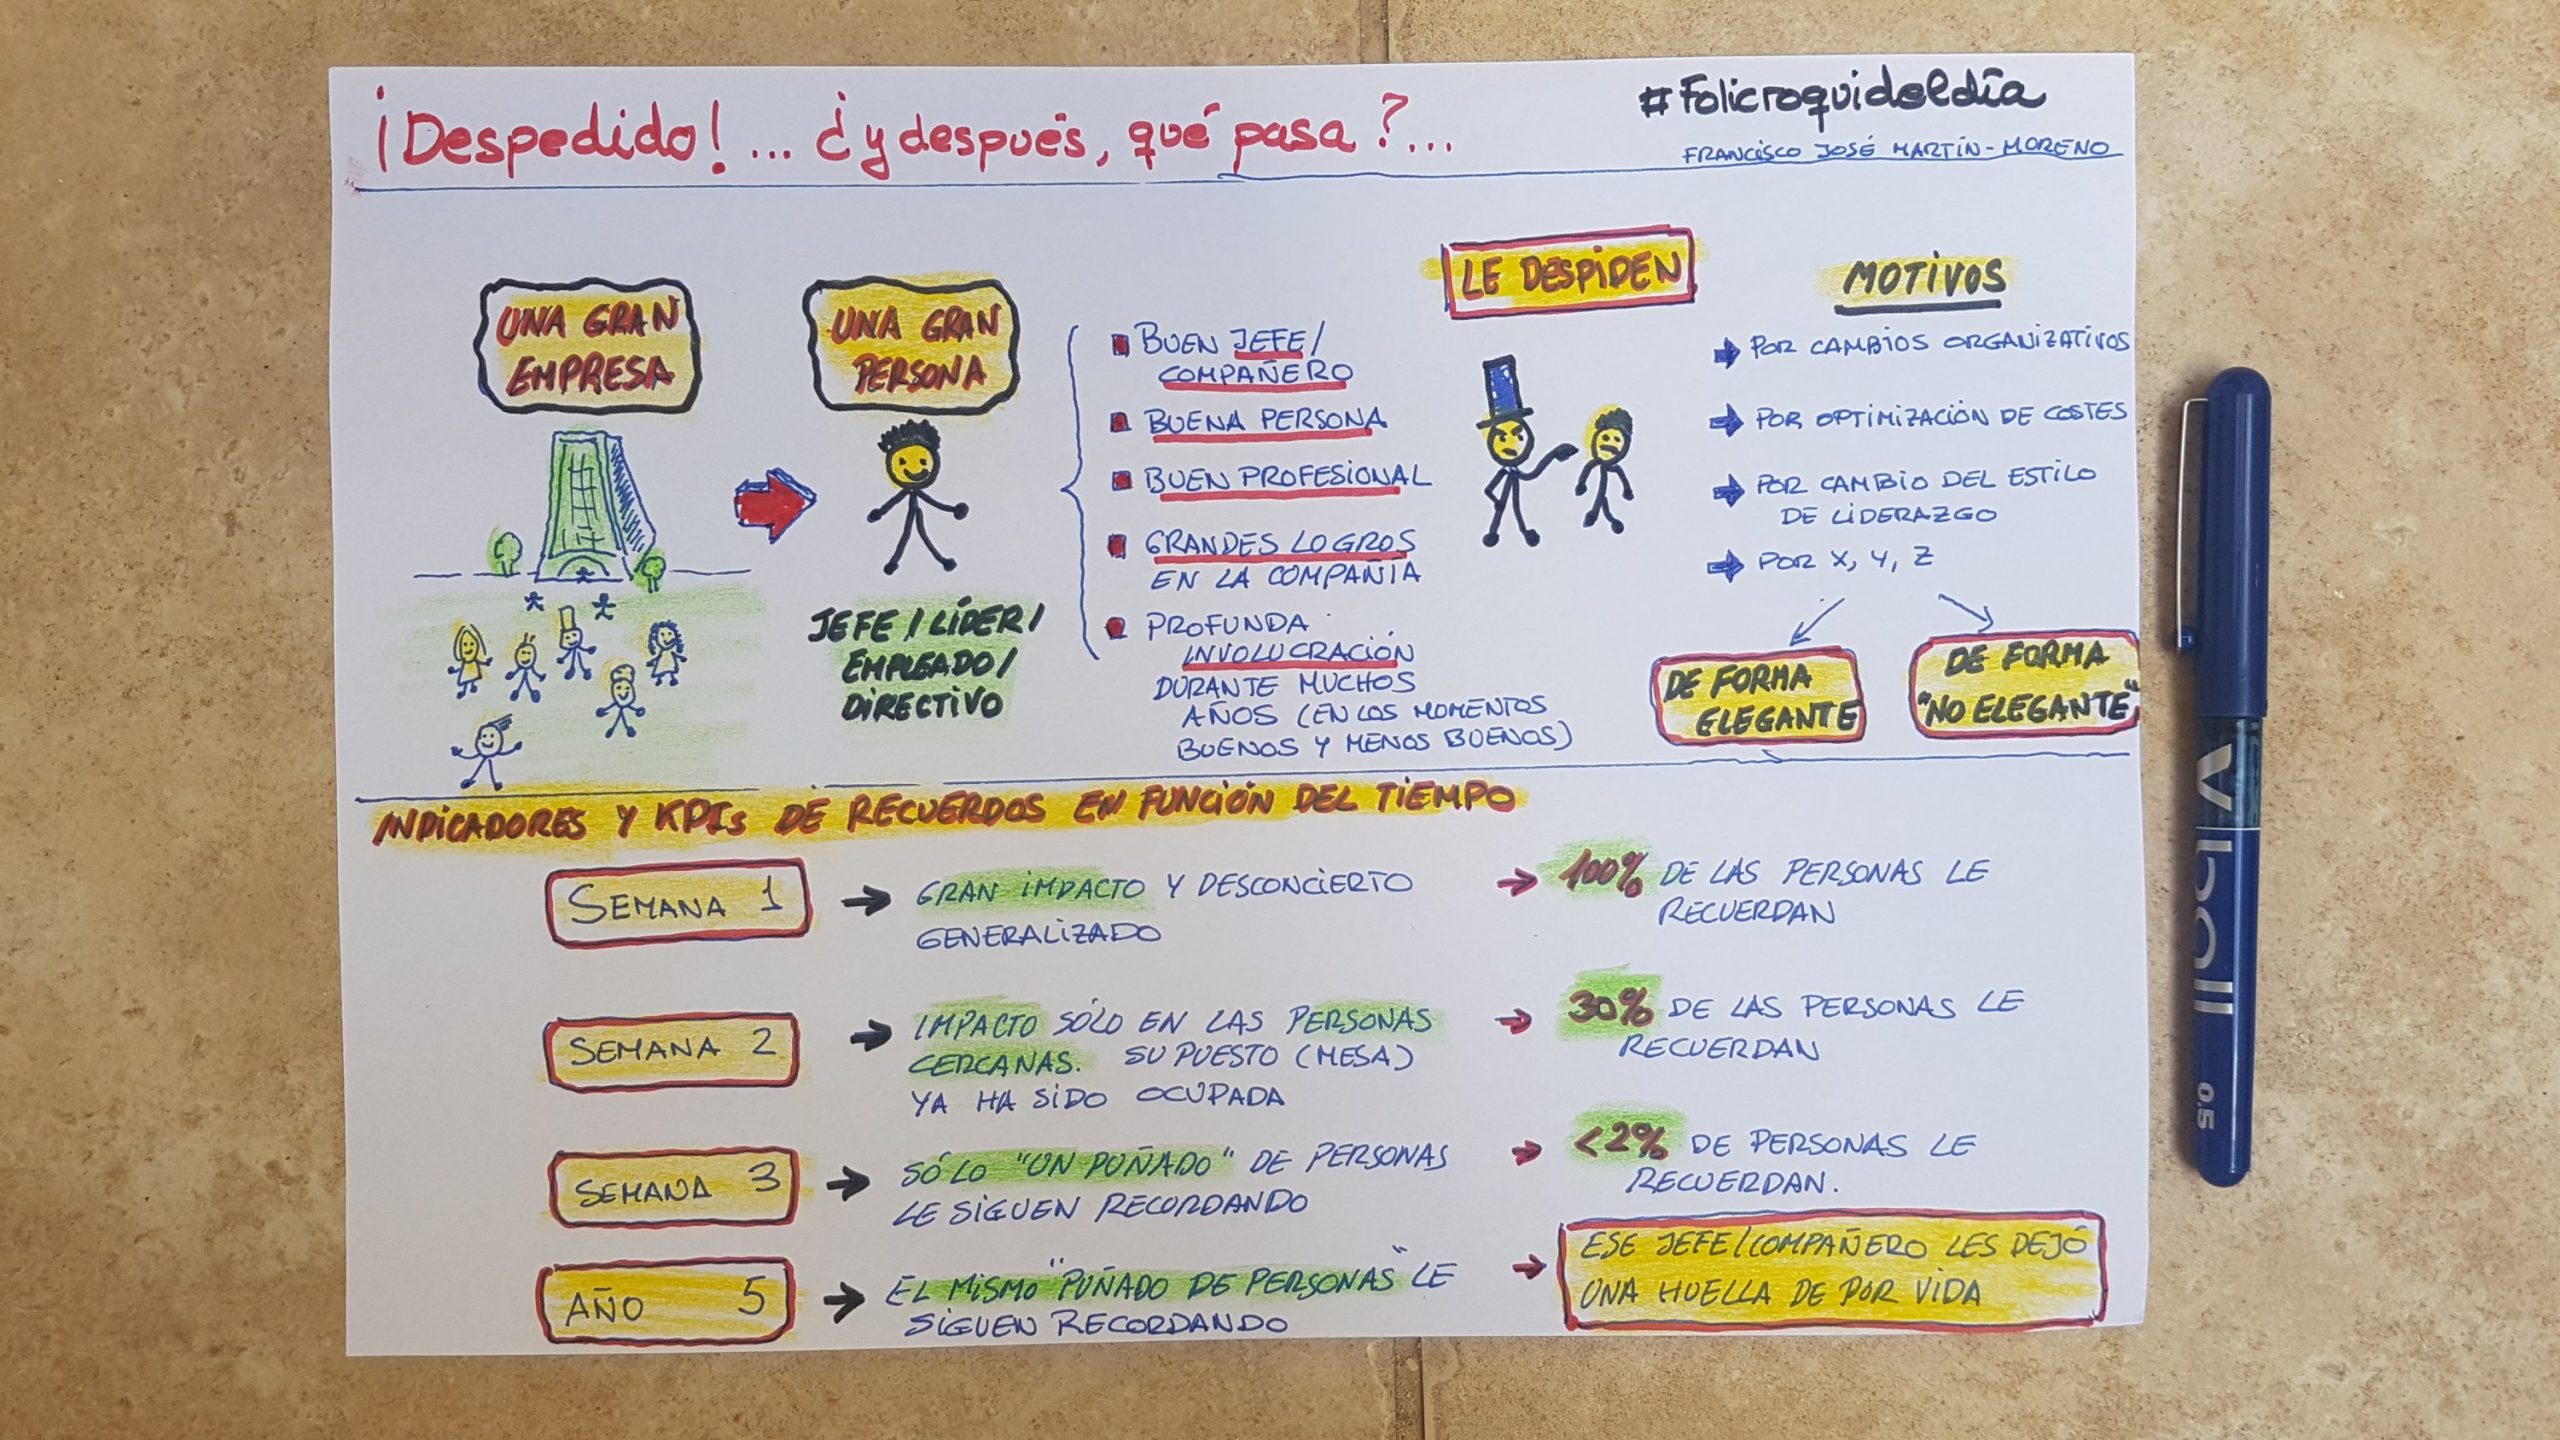 ¡Despedido!... ¿y después, qué pasa?...
#Folicroquideldía
FRANCISCO JOSÉ MARTÍN-MORENO
UNA GRAN
EMPRESA
UNA GRAN
PERSONA
JEFE / LÍDER /
EMPLEADO /
DIRECTIVO
BUEN JEFE /
COMPAÑERO
BUENA PERSONA
BUEN PROFESIONAL
GRANDES LOGROS
EN LA COMPAÑÍA
PROFUNDA
INVOLUCRACIÓN
DURANTE MUCHOS
AÑOS (EN LOS MOMENTOS
BUENOS Y MENOS BUENOS)
LE DESPIDEN
MOTIVOS
POR CAMBIOS ORGANIZATIVOS
POR OPTIMIZACIÓN DE COSTES
POR CAMBIO DEL ESTILO
DE LIDERAZGO
POR X, Y, Z
DE FORMA
ELEGANTE
DE FORMA
"NO ELEGANTE"
INDICADORES Y KPIs DE RECUERDOS EN FUNCIÓN DEL TIEMPO
SEMANA 1
GRAN IMPACTO Y DESCONCIERTO
GENERALIZADO
100% DE LAS PERSONAS LE
RECUERDAN
SEMANA 2
IMPACTO SÓLO EN LAS PERSONAS
CERCANAS. SU PUESTO (MESA)
YA HA SIDO OCUPADA
30% DE LAS PERSONAS LE
RECUERDAN
SEMANA 3
SÓLO "UN PUÑADO" DE PERSONAS
LE SIGUEN RECORDANDO
<2% DE PERSONAS LE
RECUERDAN.
AÑO 5
EL MISMO "PUÑADO DE PERSONAS" LE
SIGUEN RECORDANDO
ESE JEFE/COMPAÑERO LES DEJÓ
UNA HUELLA DE POR VIDA
Vball
0.5